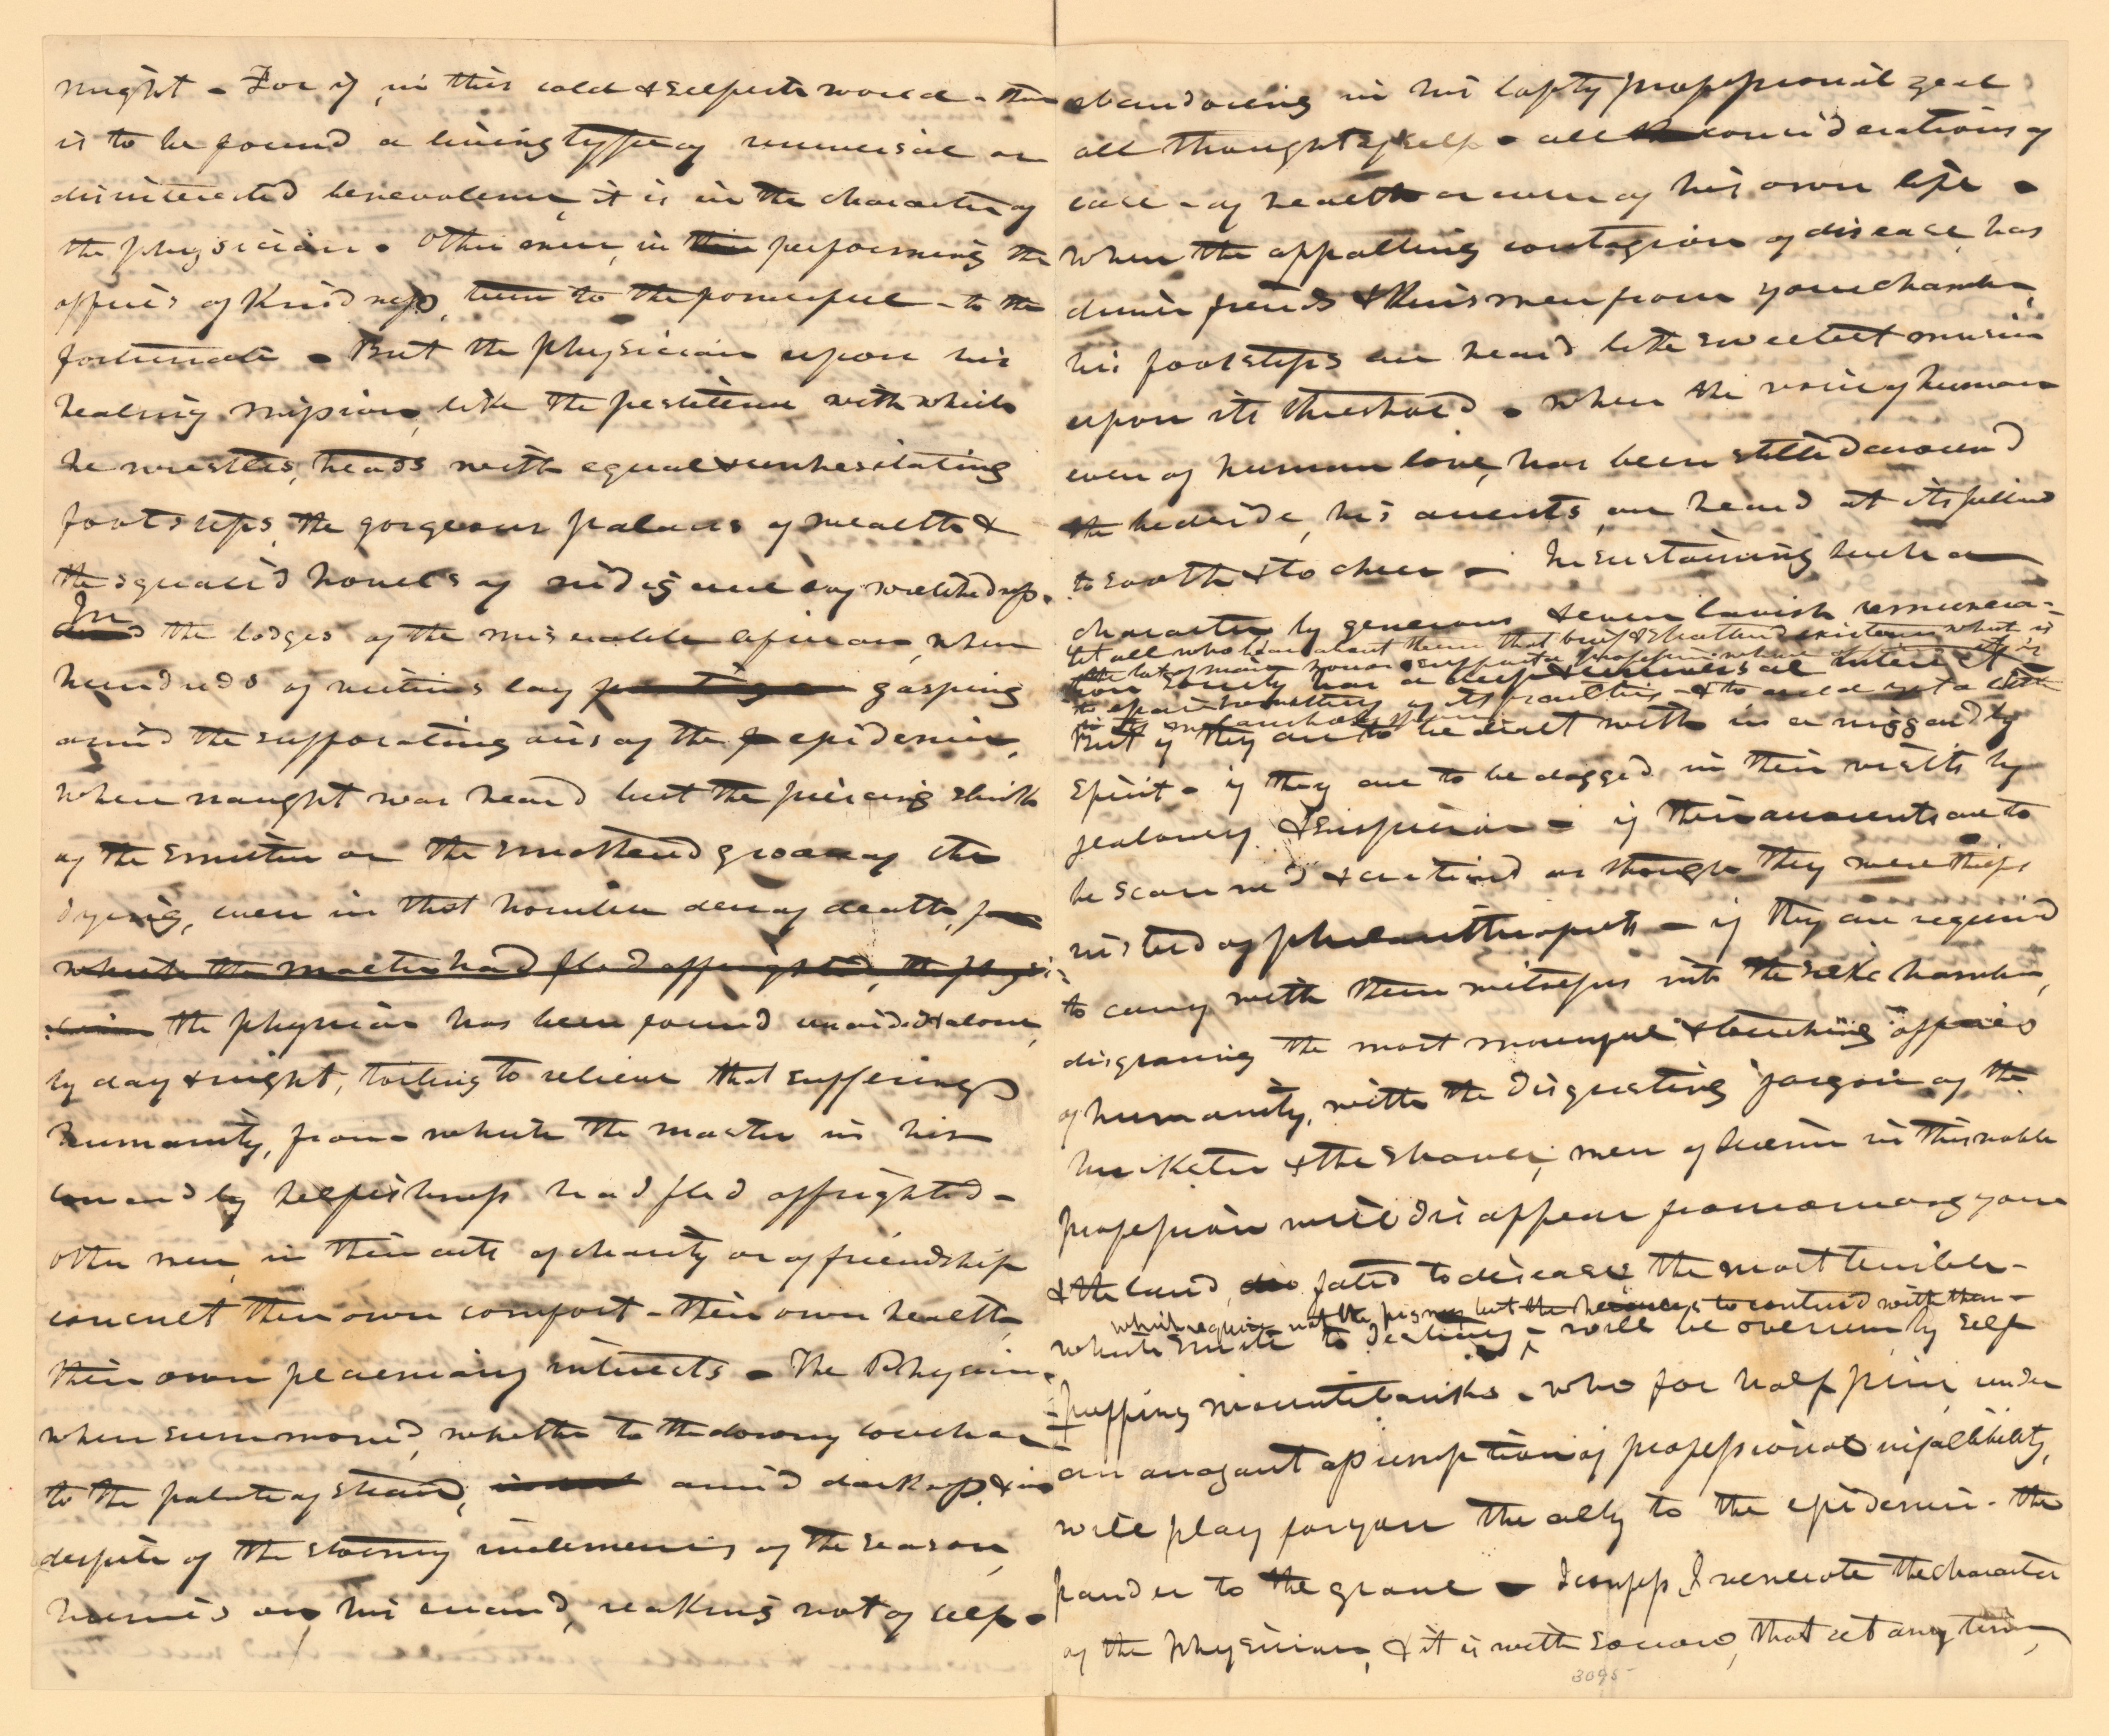 might - For if, in this cold & selfish world - there
is to be found a living type of universal or
disinterested benevolence, it is in the character of
the physician. Other men, in their performing the
offices of kindness, turn to the powerful - to the
fortunate - But the physician upon his
healing mission, like the pestilence with which
he wrestles, treads with equal & unhesitating
footsteps, the gorgeous palaces of wealth &
the squalid hovels of indigence & of wretchedness.
In
the lodges of the miserable African, when
hundreds of victims lay gasping
amid the suffocating airs of the epidemic,
when naught was heard but the piercing shriek
of the smitten or the smothered groan of the
dying, even in that horrible den of death, from
whence the master had fled affrighted, the physi-
cian the physician has been found unaided & alone,
by day & night, toiling to relieve that suffering
humanity, from whence the master in his
cowardly selfishness had fled affrighted -
other men, in their acts of charity or of friendship
consult their own comfort - their own health,
their own pecuniary interests - The Physician
when summoned, whether to the downy couch or
to the pallet of straw, amid darkness & in
despite of the stormy inclemencies of the season,
hurries on his errand, reaking not of self -
abandoning in his lofty professional zeal
all thought of self - all considerations of
ease - of health or even of his own life -
When the appalling contagion of disease has
driven friends & kinsmen from your chamber,
his footsteps are heard like sweetest music
upon its threshold - when the voice of human
even of human love, has been stilled around
the bedside, his accents are heard at its pillow
to soothe & to cheer - In sustaining such a
character by generous & even lavish remunera-
let all who bear about them that brief & shattered existence which is
the lot of man honor & support a profession whose
tion society has a deep & universal interest
to repair something of its frailties - & to add yet a little
to its
But if they are to be dealt with in a niggardly
spirit - if they are to be dogged in their visits by
jealousy & suspicion - if their accounts are to
be scanned & criticised as though they were thieves
instead of philanthropists - if they are required
to carry with them witnesses into the sick chamber,
disgracing the most mournful & touching offices
of humanity, with the disgusting jargon of the
huckster & the shaver, men of science in this noble
profession will disappear from among you
& the land, fated to diseases the most terrible -
which require not the pigmy but the hercules to contend with them -
whence smite to destiny, will be overrun by self
-puffing mountebanks - who for half price, under
an arrogant assumption of professional infallibility,
will play for you the ally to the epidemic - the
pander to the grave - I confess I venerate the character
of the physician, & it is with sorrow, that at any time,
3095